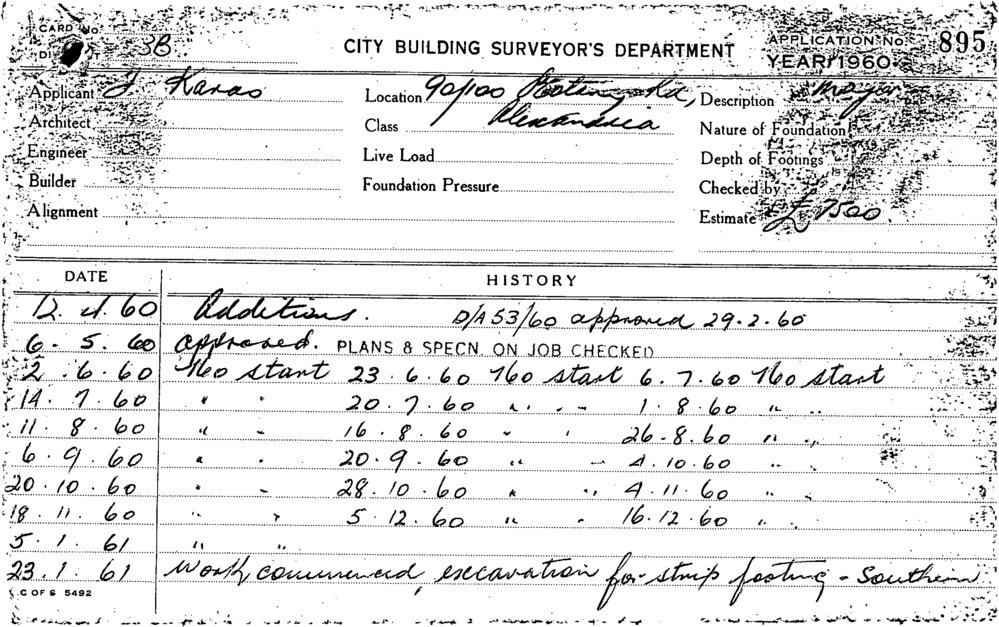 CARD No.
3B
CITY BUILDING SURVEYOR'S DEPARTMENT
APPLICATION No. 895
YEAR 1960
Applicant J. Karas
Location 90/100 Rd, Alexandria
Description Major
Architect
Class
Nature of Foundation
Engineer
Live Load
Depth of Footings
Builder
Foundation Pressure
Checked by
Alignment
Estimate £7500.
DATE HISTORY
12. 4. 60 Additions. D/A 53/60 approved 29.2.60
6. 5. 60 approved. PLANS & SPECN. ON JOB CHECKED
2. 6. 60 No start 23. 6. 60 No start 6. 7. 60 No start
14. 7. 60 " " 20. 7. 60 " " 1. 8. 60 " "
11. 8. 60 " " 16. 8. 60 " " 26. 8. 60 " "
6. 9. 60 " " 20. 9. 60 " " 4. 10. 60 " "
20. 10. 60 " " 28. 10. 60 " " 4. 11. 60 " "
18. 11. 60 " " 5. 12. 60 " " 16. 12. 60 " "
5. 1. 61 " "
23. 1. 61 Work commenced, excavation for strip footing - Southern
C OF S 5492